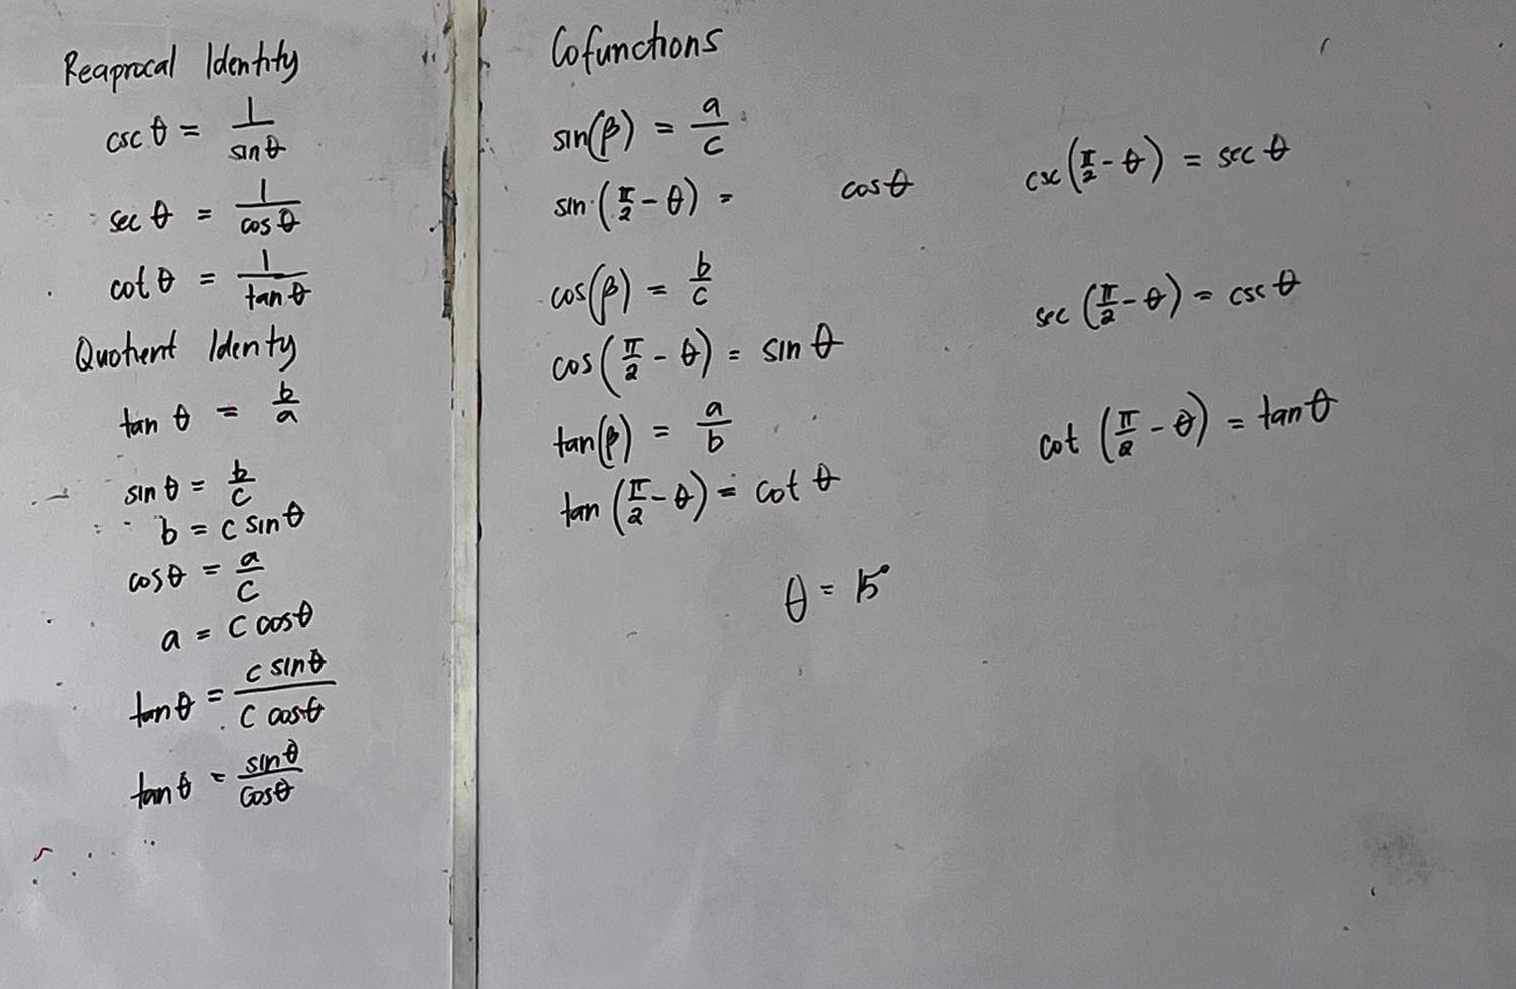 Reciprocal Identity
csc θ = 1/sin θ
sec θ = 1/cos θ
cot θ = 1/tan θ
Quotient Identy
tan θ = b/a
sin θ = b/c
b = c sin θ
cos θ = a/c
a = c cos θ
tan θ = c sin θ/c cos θ
tan θ = sin θ/cos θ
Cofunctions
sin(β) = a/c
sin (π/2 - θ) = cos θ
cos(β) = b/c
cos (π/2 - θ) = sin θ
tan(β) = a/b
tan (π/2 - θ) = cot θ
θ = 15°
csc (π/2 - θ) = sec θ
sec (π/2 - θ) = csc θ
cot (π/2 - θ) = tan θ